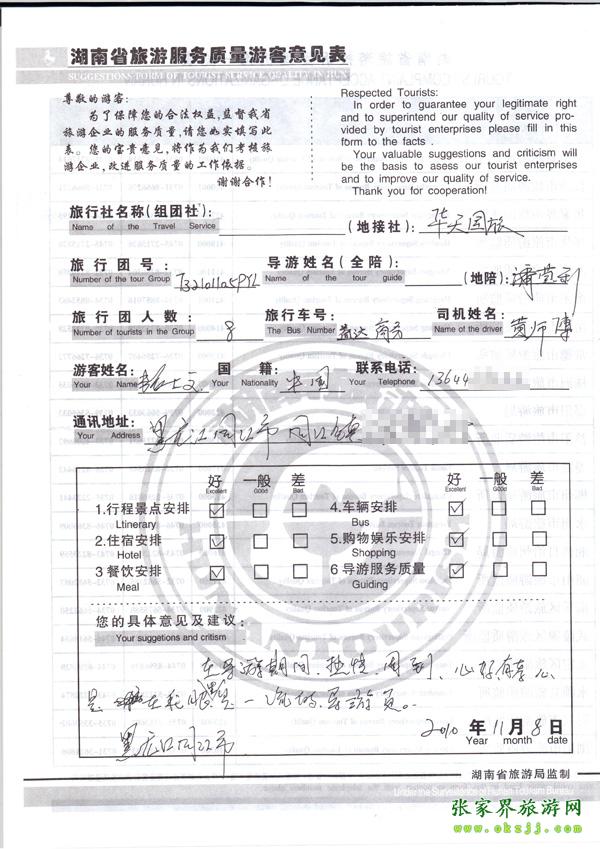 湖南省旅游服务质量游客意见表
SUGGESTIONS FORM OF TOURIST SERVICE QUALITY
尊敬的游客:
为了保障您的合法权益,监督我省
旅游企业的服务质量,请您如实填写此
表。您的宝贵意见,将作为我们考核旅
游企业,改进服务质量的工作依据。
谢谢合作!
Respected Tourists:
In order to guarantee your legitimate right
and to superintend our quality of service pro-
vided by tourist enterprises please fill in this
form to the facts .
Your valuable suggestions and criticism will
be the basis to asess our tourist enterprises
and to improve our quality of service.
Thank you for cooperation!
旅行社名称(组团社): (地接社): 华天国旅
Name of the Travel Service
旅行团号: 导游姓名(全陪): (地陪):
Number of the tour Group Name of the tour guide
旅行团人数: 8 旅行车号: 商务 司机姓名: 黄师傅
Number of tourists in the Group The Bus Number Name of the driver
游客姓名: 国籍: 中国 联系电话: 13644
Your Name Your Nationality Your Telephone
通讯地址: 黑龙江同江市同江镇
Your Address
好 一般 差 好 一般 差
Excellent Good Bad Excellent Good Bad
1.行程景点安排 4.车辆安排
Ltinerary Bus
2.住宿安排 5.购物娱乐安排
Hotel Shopping
3 餐饮安排 6 导游服务质量
Meal Guiding
您的具体意见及建议:
Your suggetions and critism
在导游期间,热情,周到,心好,有孝心
是 在我眼里是一流的导游员。
黑龙江同江市
2010 年 11 月 8 日
Year month date
湖南省旅游局监制
Under the Surveillance of Hunan Tourism Bureau
张家界旅游网
www.okzjj.com